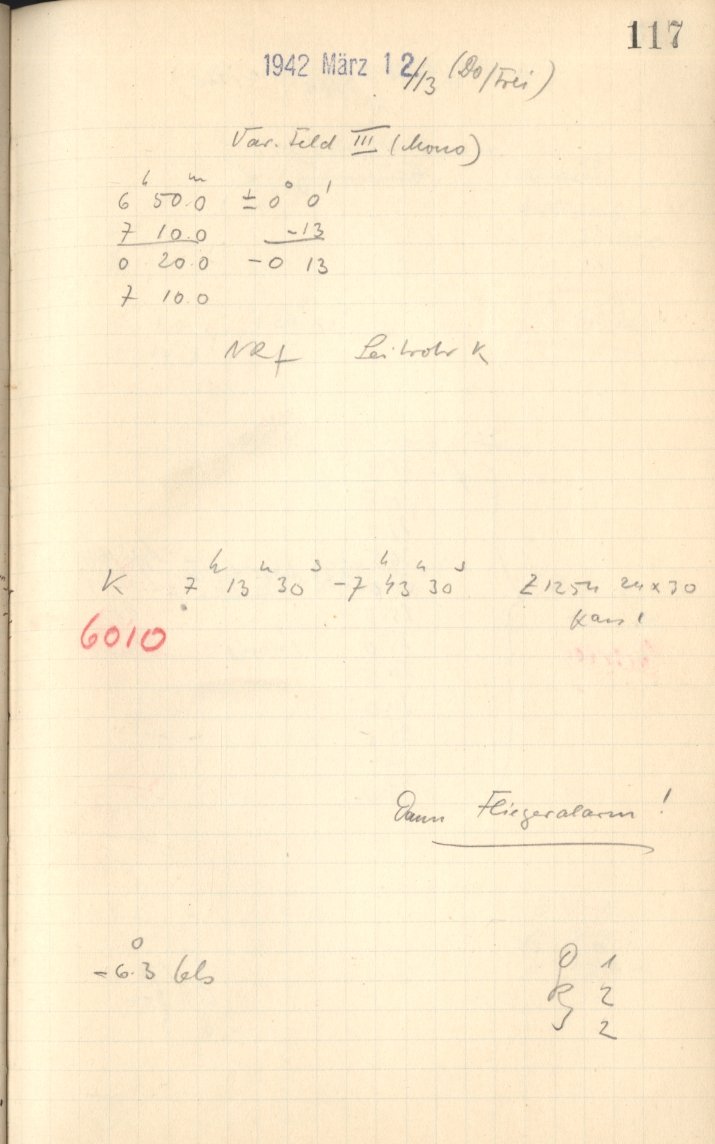 117
1942 März 12/13 (Do/Frei)
Var. Feld III (Mono)
6 h 50.0 m ± 0° 0'
7 10.0 -13
0 20.0 -0 13
7 10.0
Leitrohr K
K 7 h 13 m 30 s - 7 h 43 m 30 s Z 1254 24 x 30
6010
Dann Fliegeralarm!
-6.3° bb
1
2
2